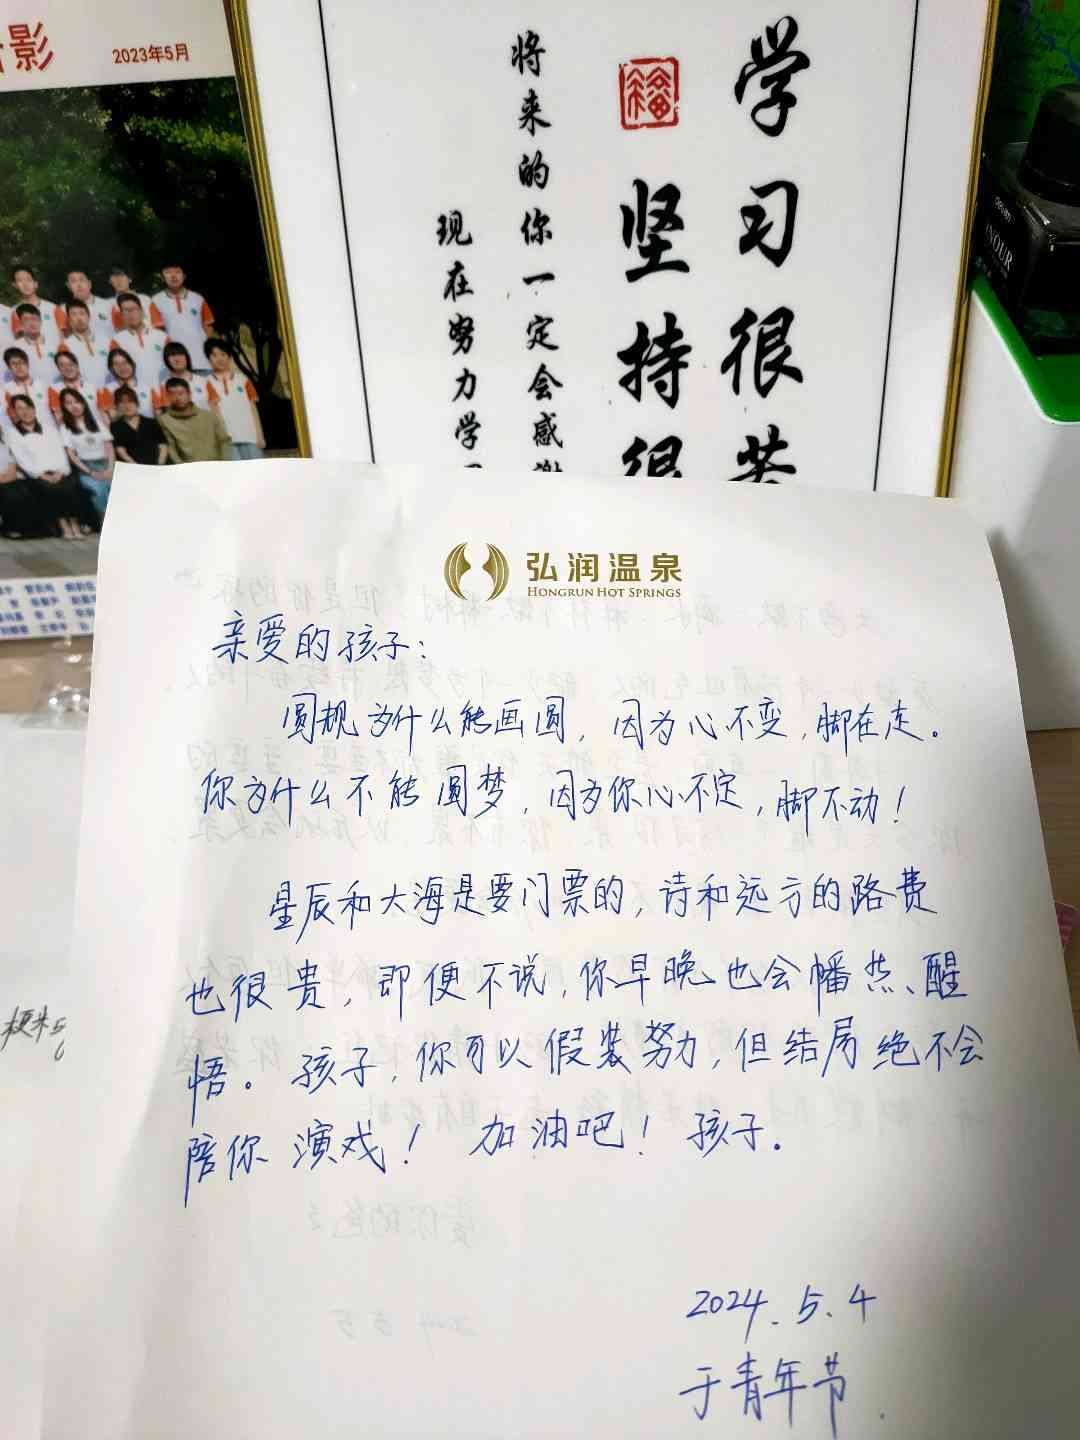 合影
2023年5月
学习很苦
坚持很
福
将来的你一定会感谢
现在努力学
弘润温泉
HONGRUN HOT SPRINGS
亲爱的孩子：
圆规为什么能画圆，因为心不变，脚在走。
你为什么不能圆梦，因为你心不定，脚不动！
星辰和大海是要门票的，诗和远方的路费
也很贵，即便不说，你早晚也会幡然、醒
悟。孩子，你可以假装努力，但结局绝不会
陪你演戏！加油吧！孩子.
2024.5.4
于青年节.